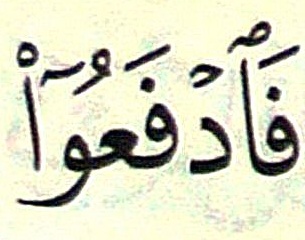 فَٱدْفَعُوٓا۟